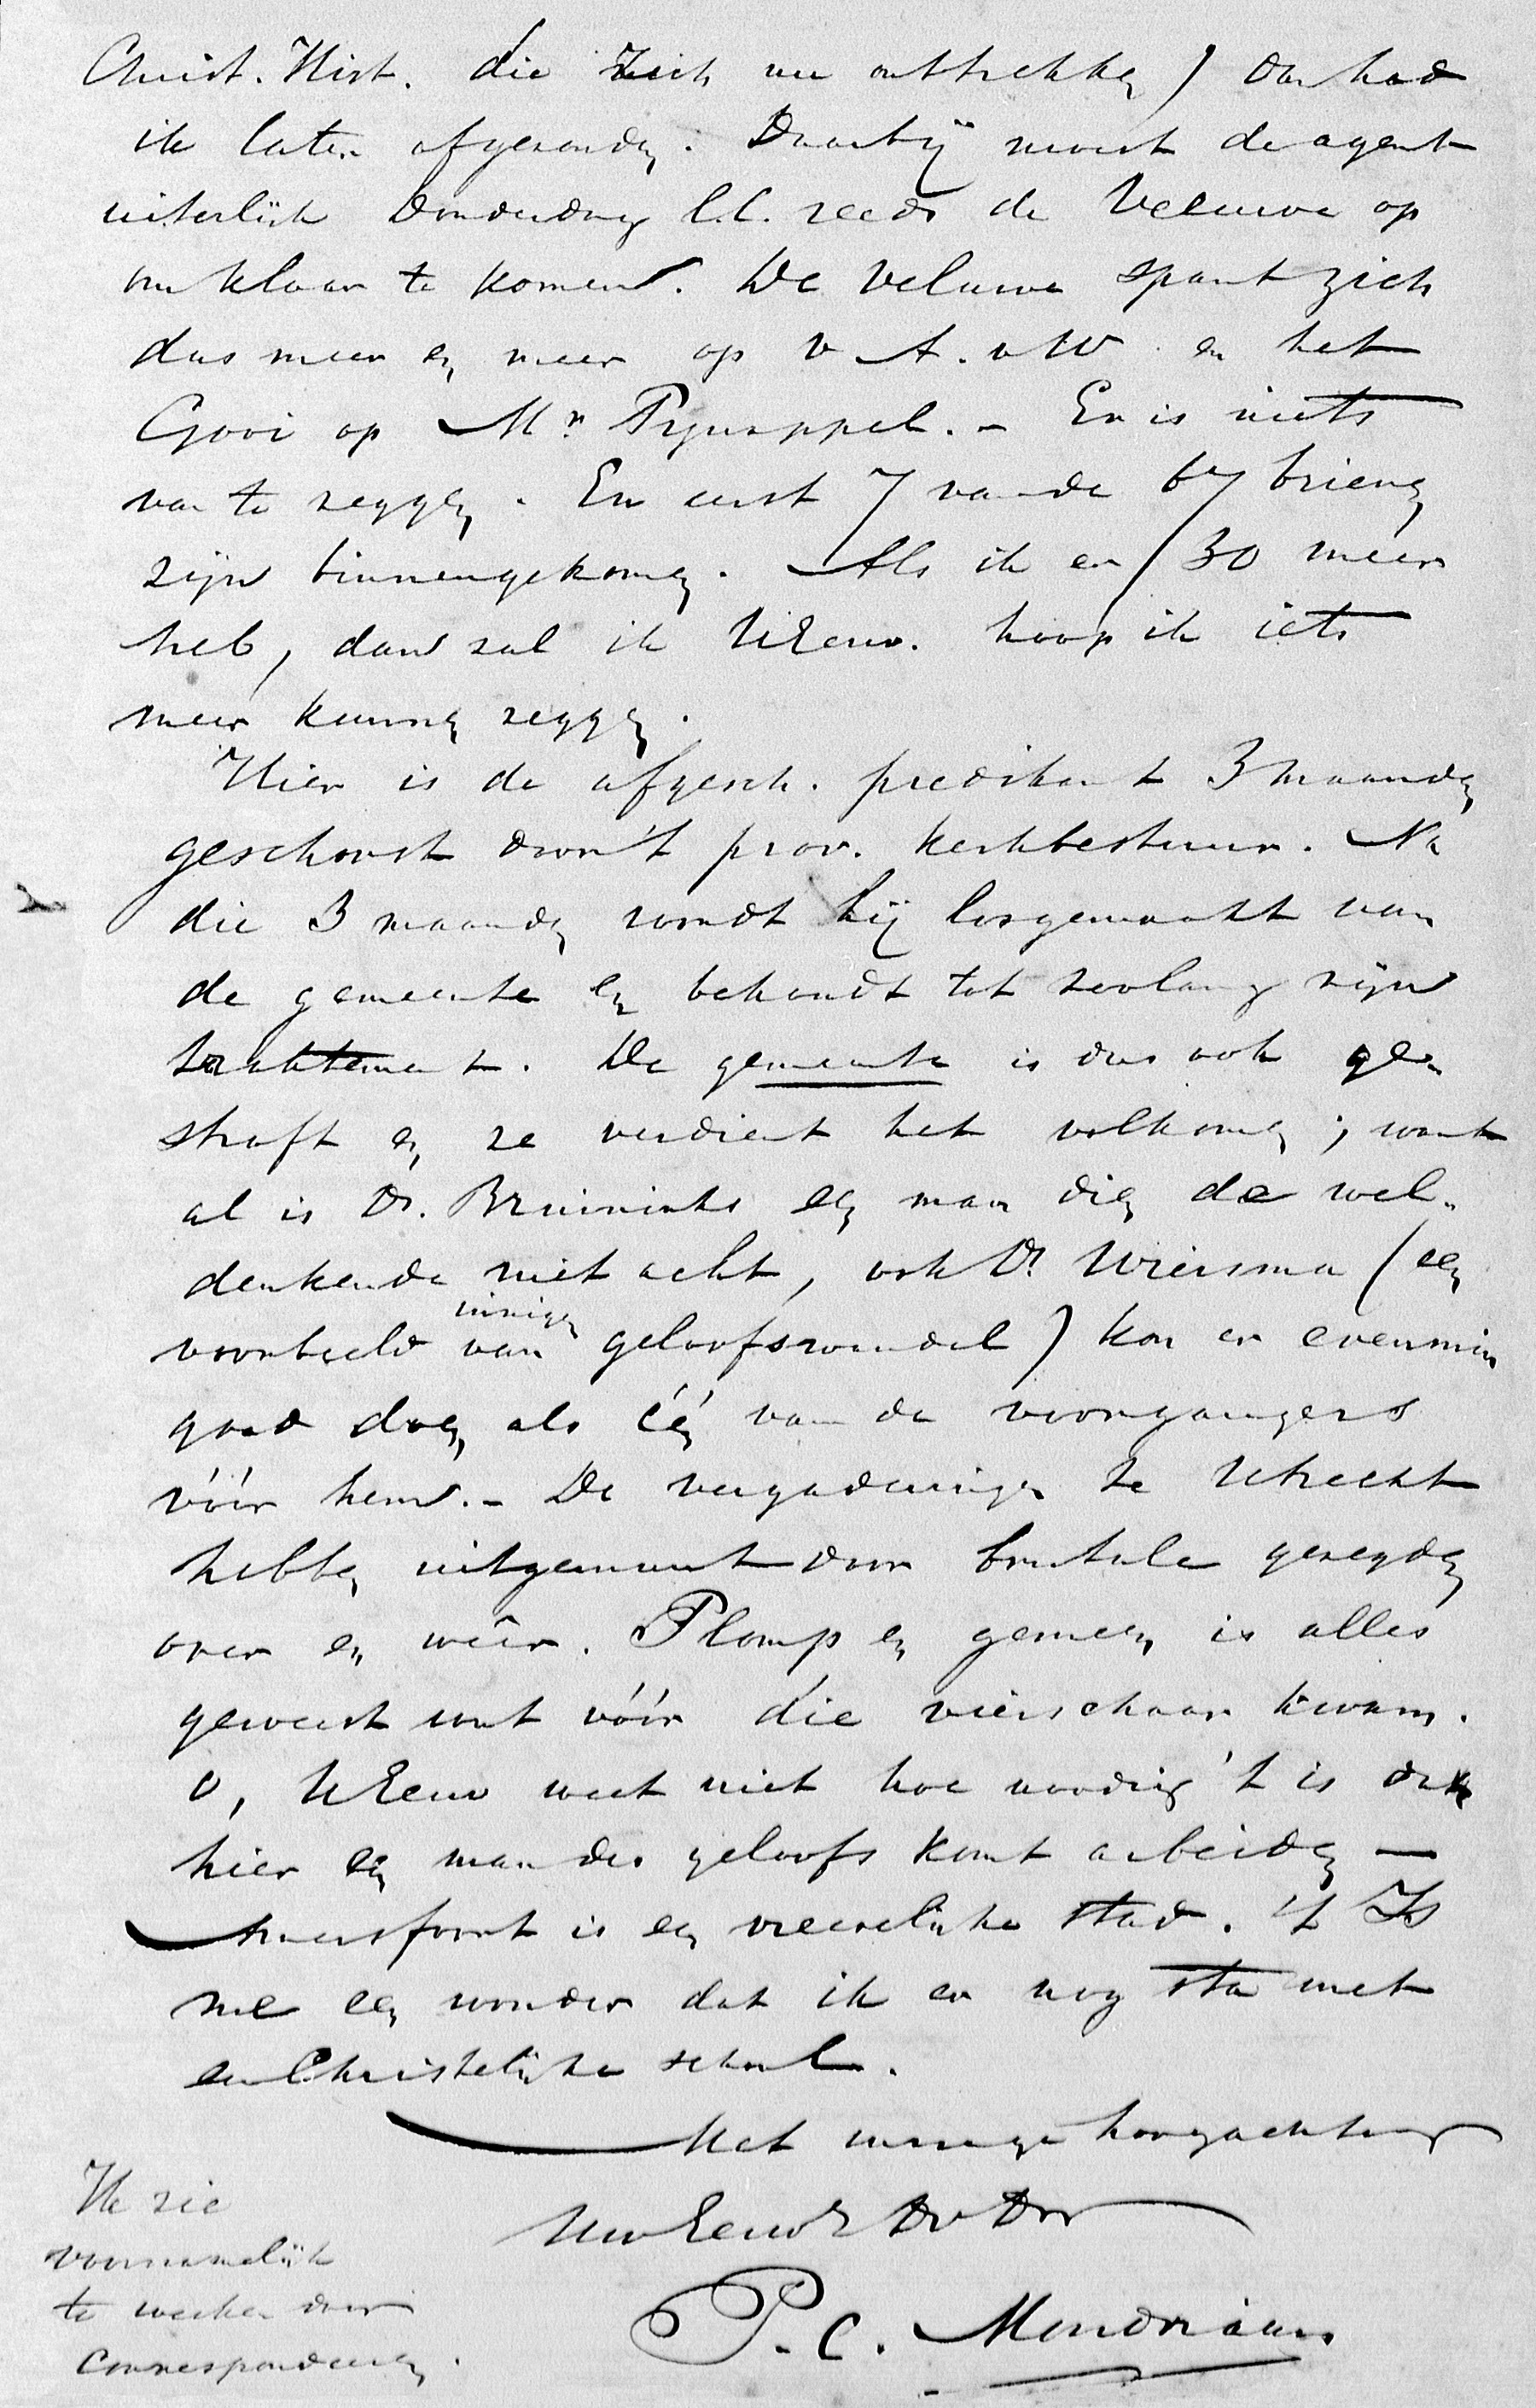 Christ. Hist. die zich nu onttrekken) dan had
ik laten afgezonden. Daarbij moest de agent
uiterlijk Donderdag l.l. reeds de Veluwe op
om klaar te komen. De Veluwe spant zich
dus meer en meer op v A. v W en het
Gooi op Mr Pynappel. – Er is niets
van te zeggen. Er eerst 7 van de 67 brieven
zijn binnengekomen. Als ik er 30 meer
heb, dan zal ik UEerw. hoop ik iets
meer kunnen zeggen.
Hier is de afgesch. predikant 3 maanden
geschorst door 't prov. kerkbestuur. Na
die 3 maanden wordt hij losgemaakt van
de gemeente en behoudt tot zoolang zijn
tractement. De gemeente is dus ook ge-
straft en ze verdient het volkomen; want
al is Ds. Bruininks een man dien de wel-
denkende niet acht, ook Ds Wiersma (een
voorbeeld van innigen geloofswandel) kon er evenmin
goed doen als één van de voorgangers
vóór hem. – De vergaderingen te Utrecht
hebben uitgemunt door brutale gezegden
over en wêer. Plomp en gemeen is alles
geweest wat vóór die vierschaar kwam.
O, UEerw weet niet hoe noodig 't is dat
hier een man des geloofs komt arbeiden –
Amersfoort is een vreeselijke stad. 't Is
me een wonder dat ik er nog sta met
een Christelijke school.
Met innige hoogachting
UwEerw Dv Dr
P. C. Mondriaan
Ik zie
voornamelijk
te werken door
correspondenten.